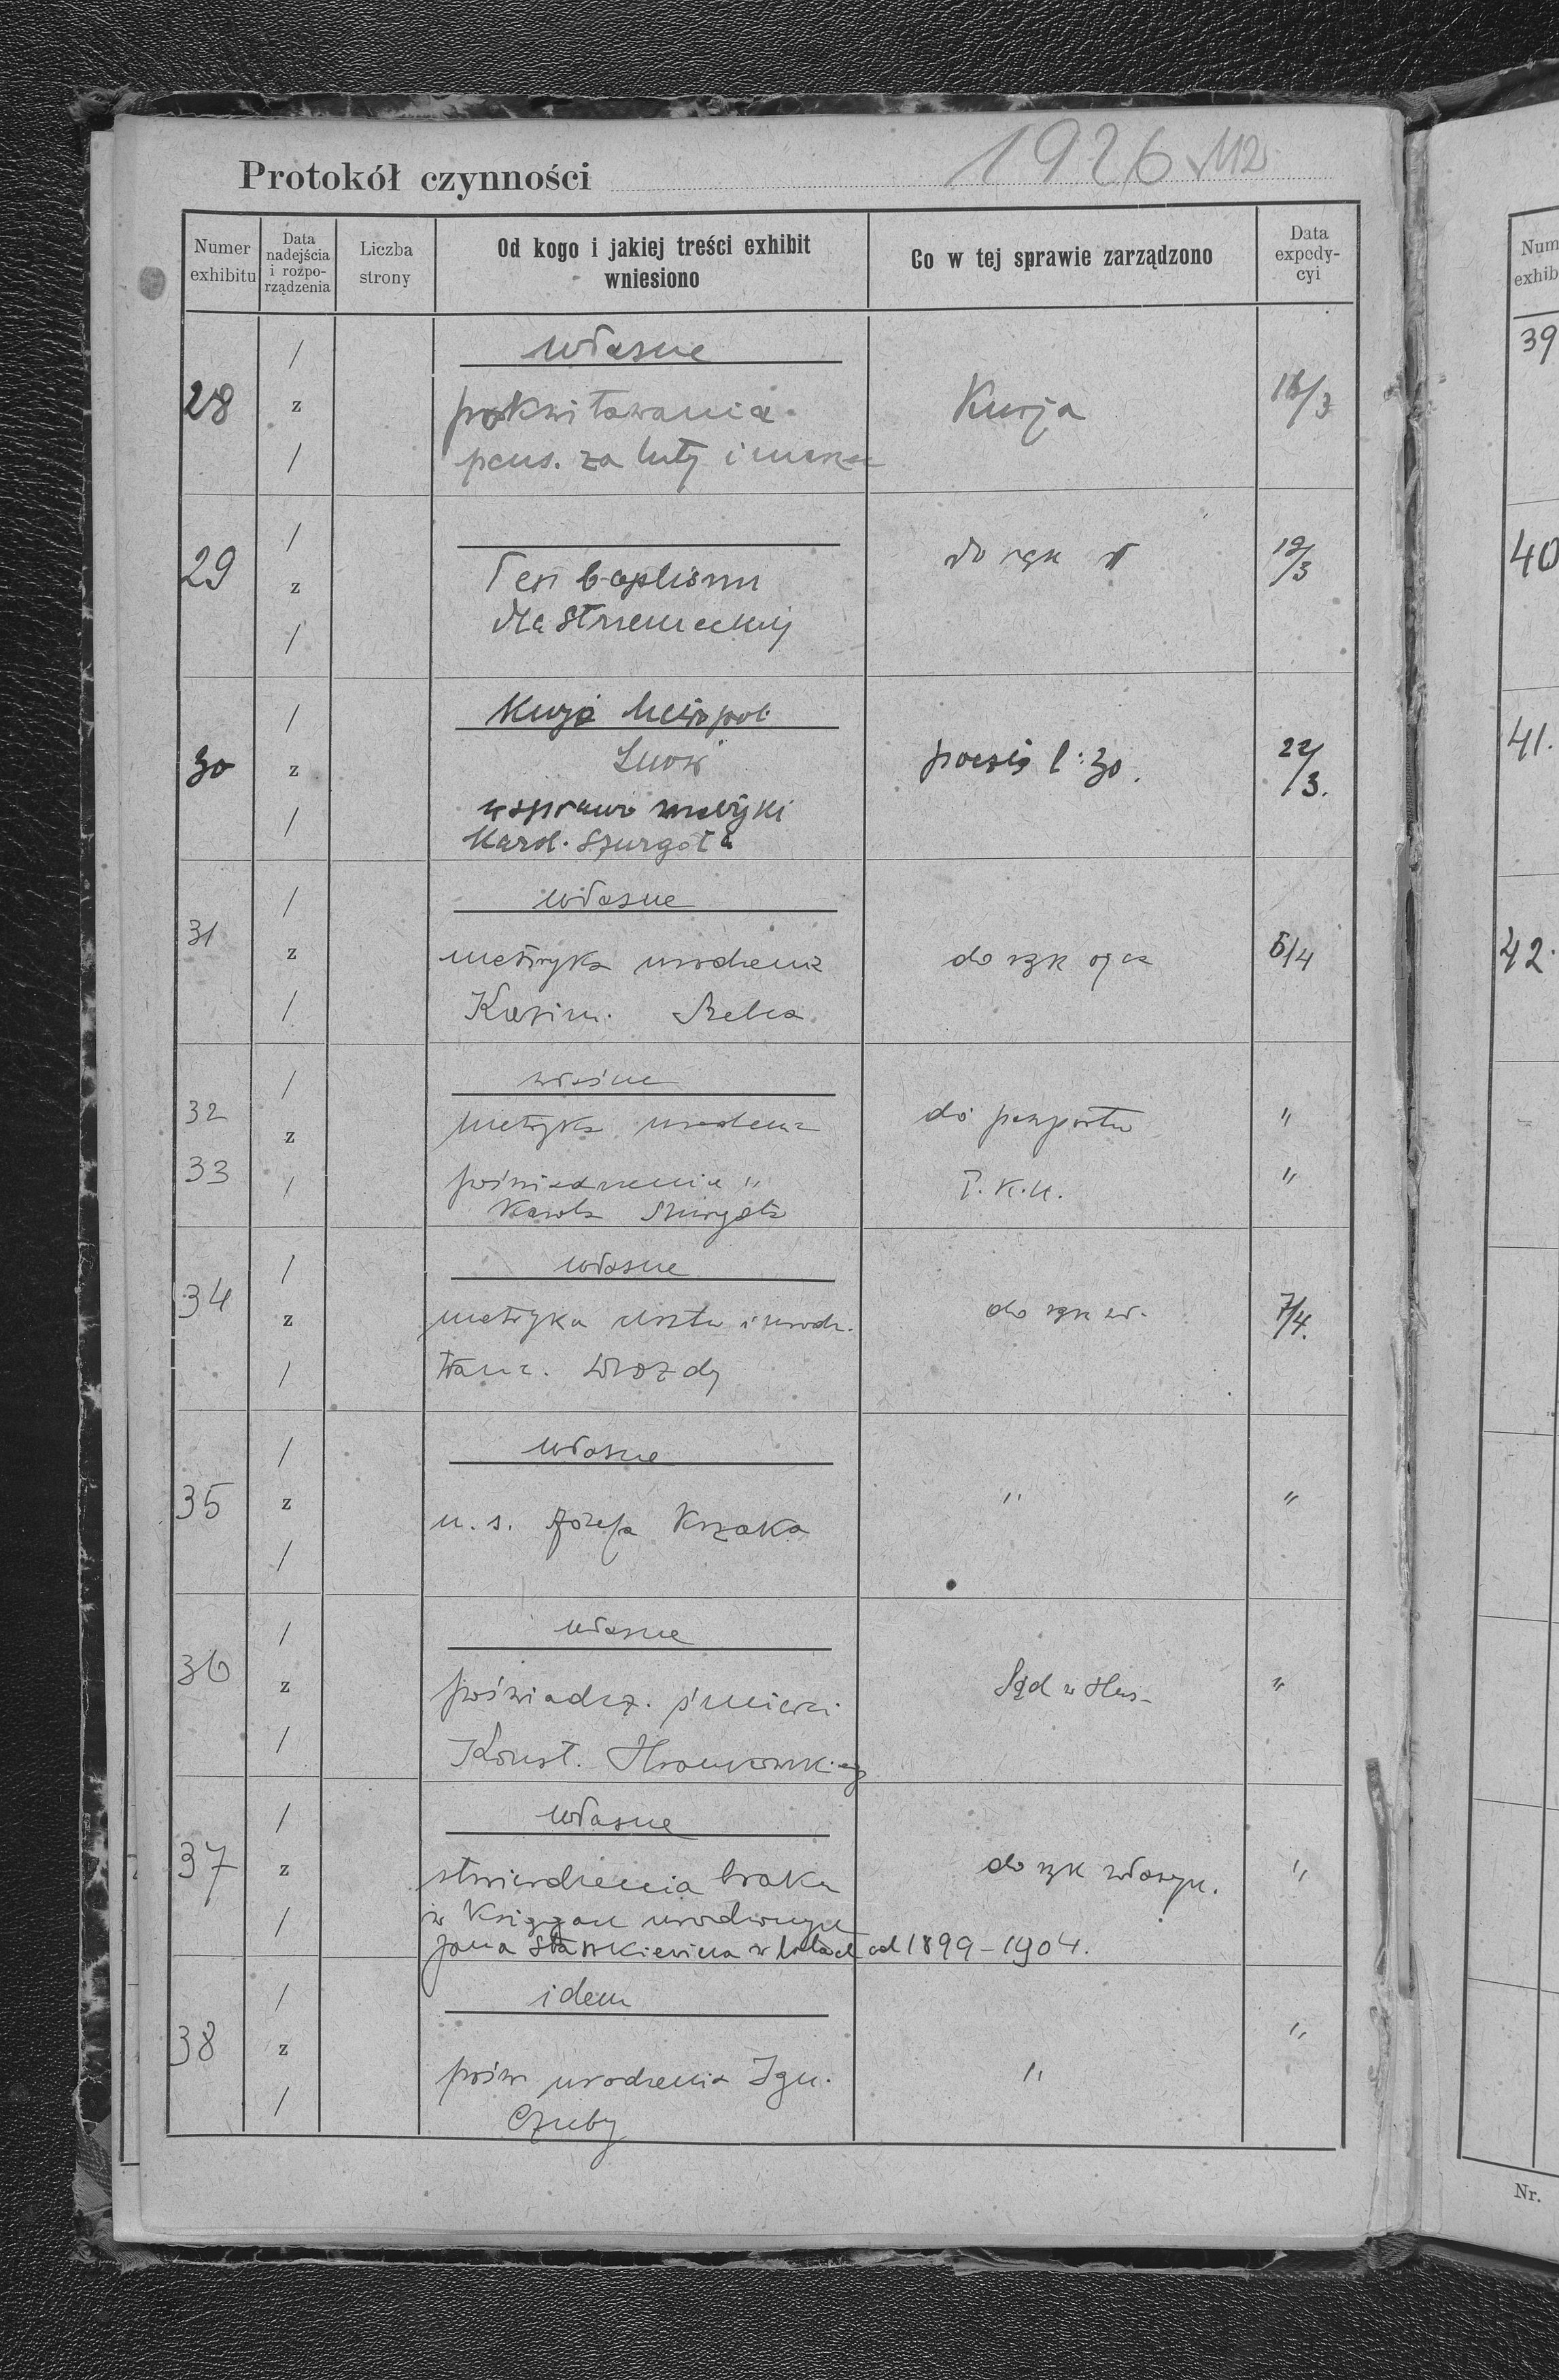 Protokół czynności 1926 112
Numer exhibitu
Data nadejścia i rozporządzenia
Liczba strony
Od kogo i jakiej treści exhibit wniesiono
Co w tej sprawie zarządzono
Data expedycyi
/ własne
28 z pokwitowania Kurja 16/3
/ pens. za luty i marzec
/
29 z Test baptismi do rąk 19/3
/ dla
/ Kurja Metropol.
30 z Lwów poszło l: 30. 22/3.
/ w sprawie metryki
Karol. Szurgota
/ własne
31 z metryka urodzenia do rąk ojca 6/4
/ Kazim.
/ własne
32 z metryka urodzenia do paszportu "
33 / poświadczenie " P.K.U. "
Karola Szurgota
/ własne
34 z metryka chrztu i urodz. do rąk wł. 7/4.
/ Franc. Drozdy
/ własne
35 z m. s. Józefa Krzaka " "
/
/ własne
36 z poświadcz. śmierci Sąd w "
/ Konst.
/ własne
37 z stwierdzenia braku do rąk własnych. "
/ w Księgach urodzonych
Jana Stankiewicza w latach od 1899-1904.
/ idem
38 z pośw urodzenia Ign. " "
/ Czuby
Num
exhib
39
40
41.
42.
Nr.